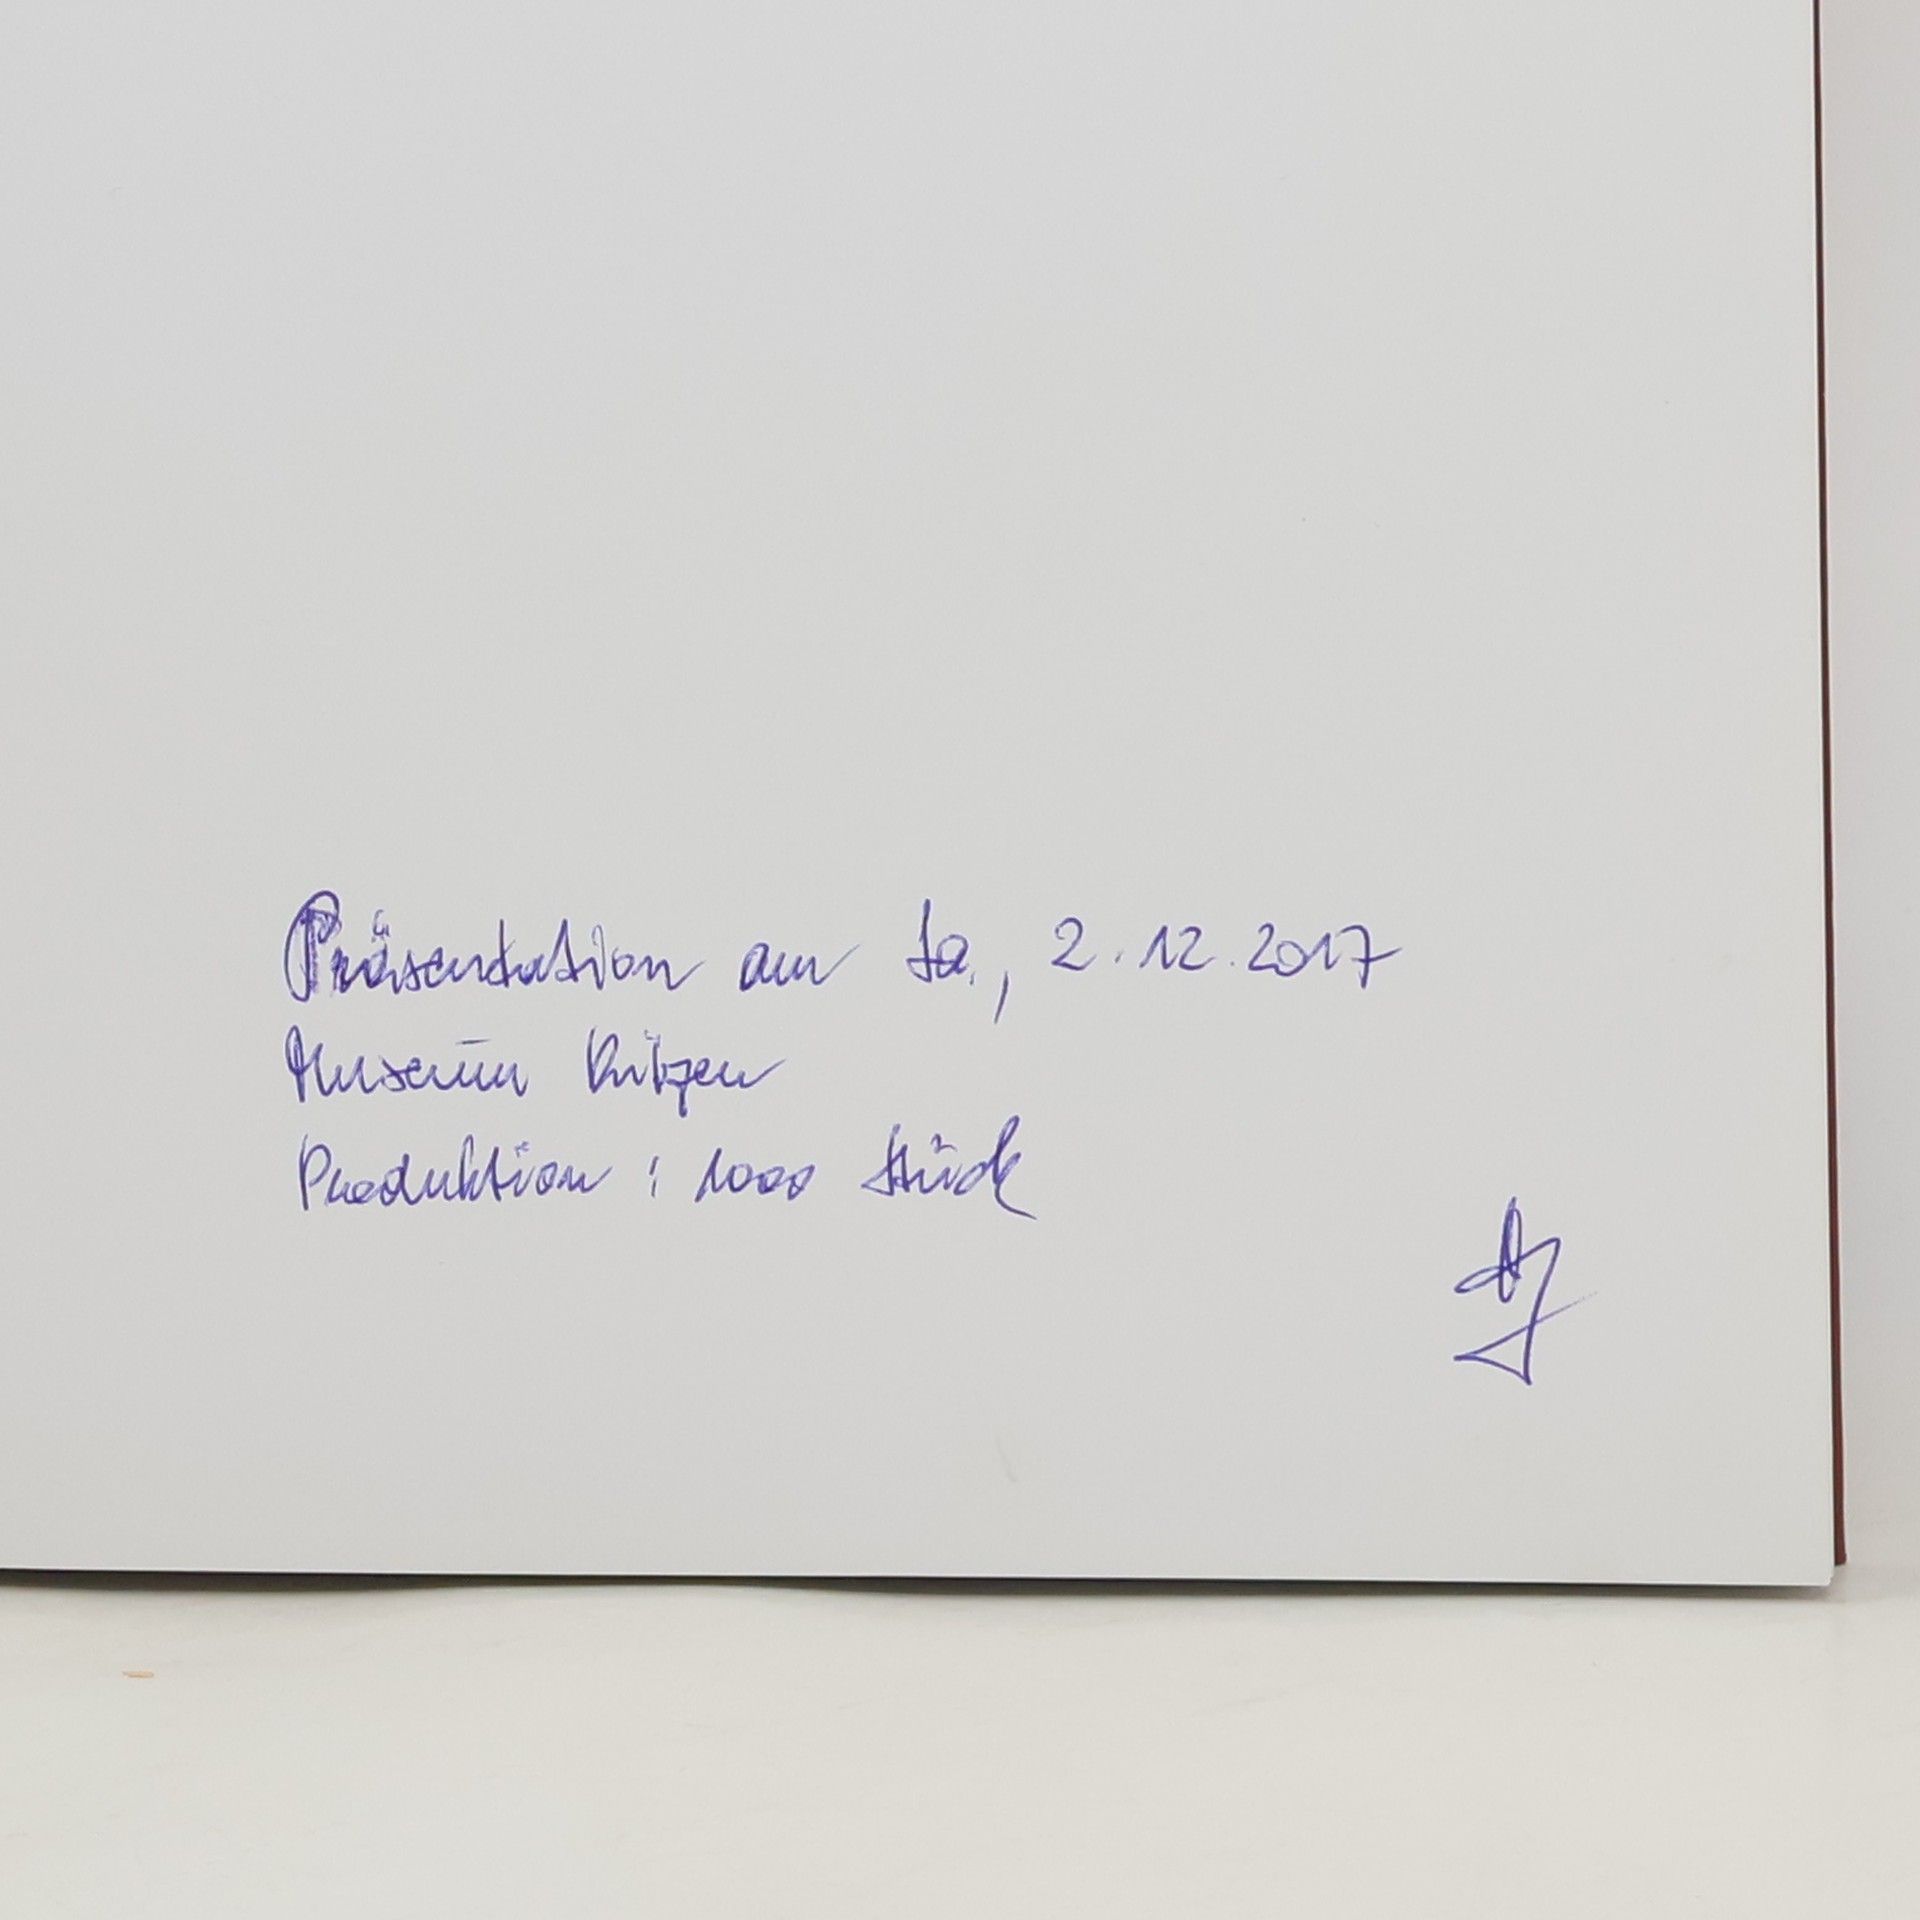 Präsentation am Sa., 2.12.2017
Museum
Produktion : 1000 Stück